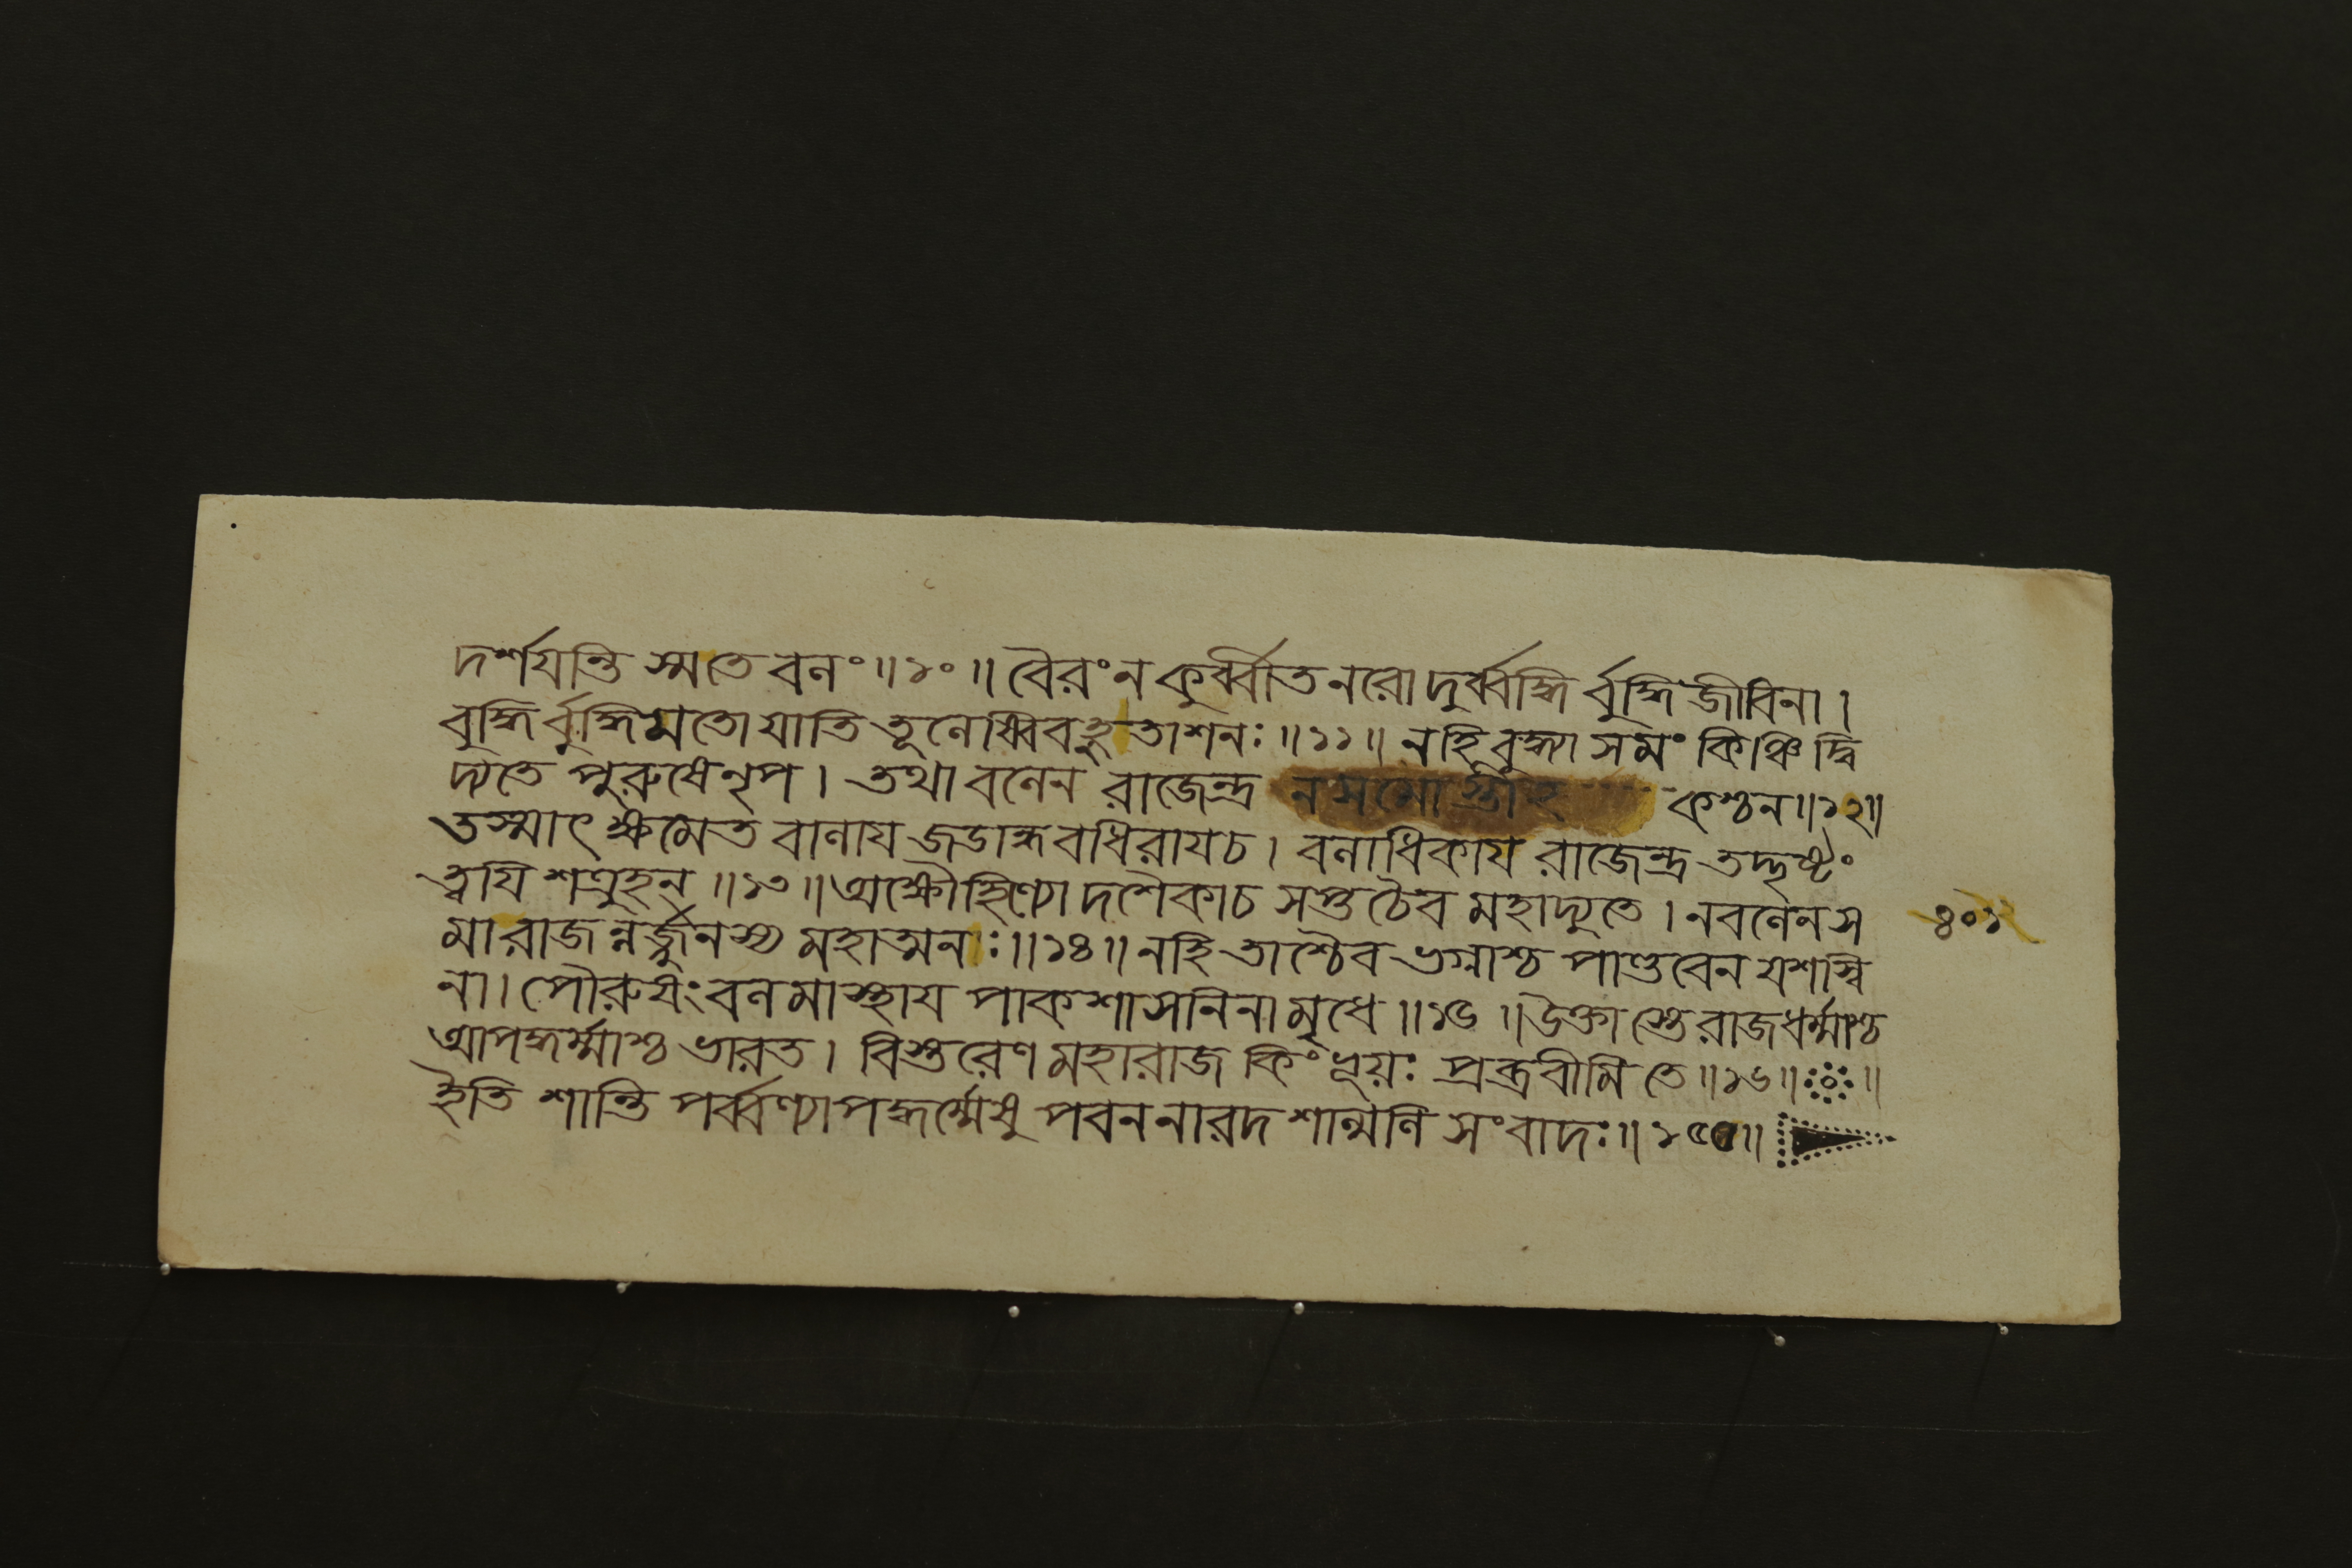 দর্শযন্তি স্মতে বনং॥১০॥ বৈরং ন কুর্ব্বীত নরো দুর্ব্বদ্ধি র্বুদ্ধি জীবিনা।
বুদ্ধি র্বুদ্ধিমতো যাতি তূনেষ্বিব হুতাশনঃ॥১১॥ নহি বুদ্ধ্যা সমং কিঞ্চিদ্বি
দ্যতে পুরুষে নৃপ। তথা বনেন রাজেন্দ্র ন সমোস্তীহ কশ্চন॥১২॥
তস্মাৎ ক্ষমেত বানায জডান্ধ বধিরাযচ। বনাধিকায রাজেন্দ্র তদ্দৃষ্টং
ত্বযি শত্রুহন্॥১৩॥ অক্ষৌহিণ্যো দশৈকাচ সপ্তচৈব মহাদ্যুতে। নবনেন স
মা রাজন্নর্জ্জুনস্য মহাত্মনাঃ॥১৪॥ নহি তাশ্চৈব ভগ্নাশ্চ পাণ্ডবেন যশস্বি
না। পৌরুষং বনমাস্থায পাকশাসনিনা মৃধে॥১৫॥ উক্তাস্তে রাজধর্ম্মাশ্চ
আপদ্ধর্ম্মাশ্চ ভারত। বিস্তরেণ মহারাজ কিং ভূয়ঃ প্রব্রবীমি তে॥১৬॥ ॥
ইতি শান্তি পর্ব্বণ্যাপদ্ধর্ম্মেষু পবন নারদ শান্মনি সংবাদঃ॥১৫৫॥
৪০১